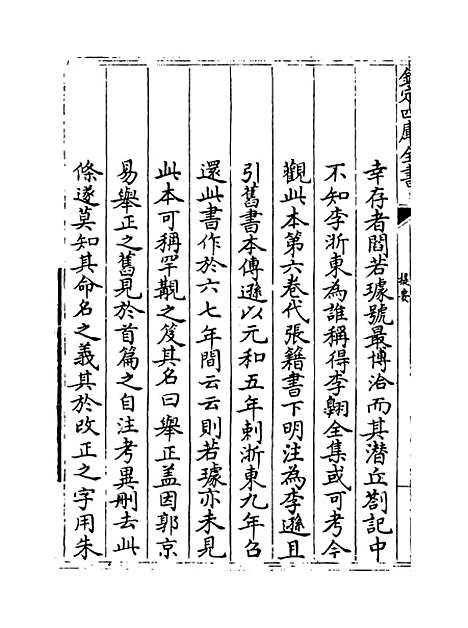 欽定四庫全書
提要
幸存者閻若璩號最博洽而其潛丘劄記中
不知李浙東為誰稱得李翺全集或可考今
觀此本第六卷代張籍書下明注為李遜且
引舊書本傳遜以元和五年刺浙東九年召
還此書作於六七年間云云則若璩亦未見
此本可稱罕覯之笈其名曰舉正盖因郭京
易舉正之舊見於首篇之自注考異刪去此
條遂莫知其命名之義其於改正之字用朱